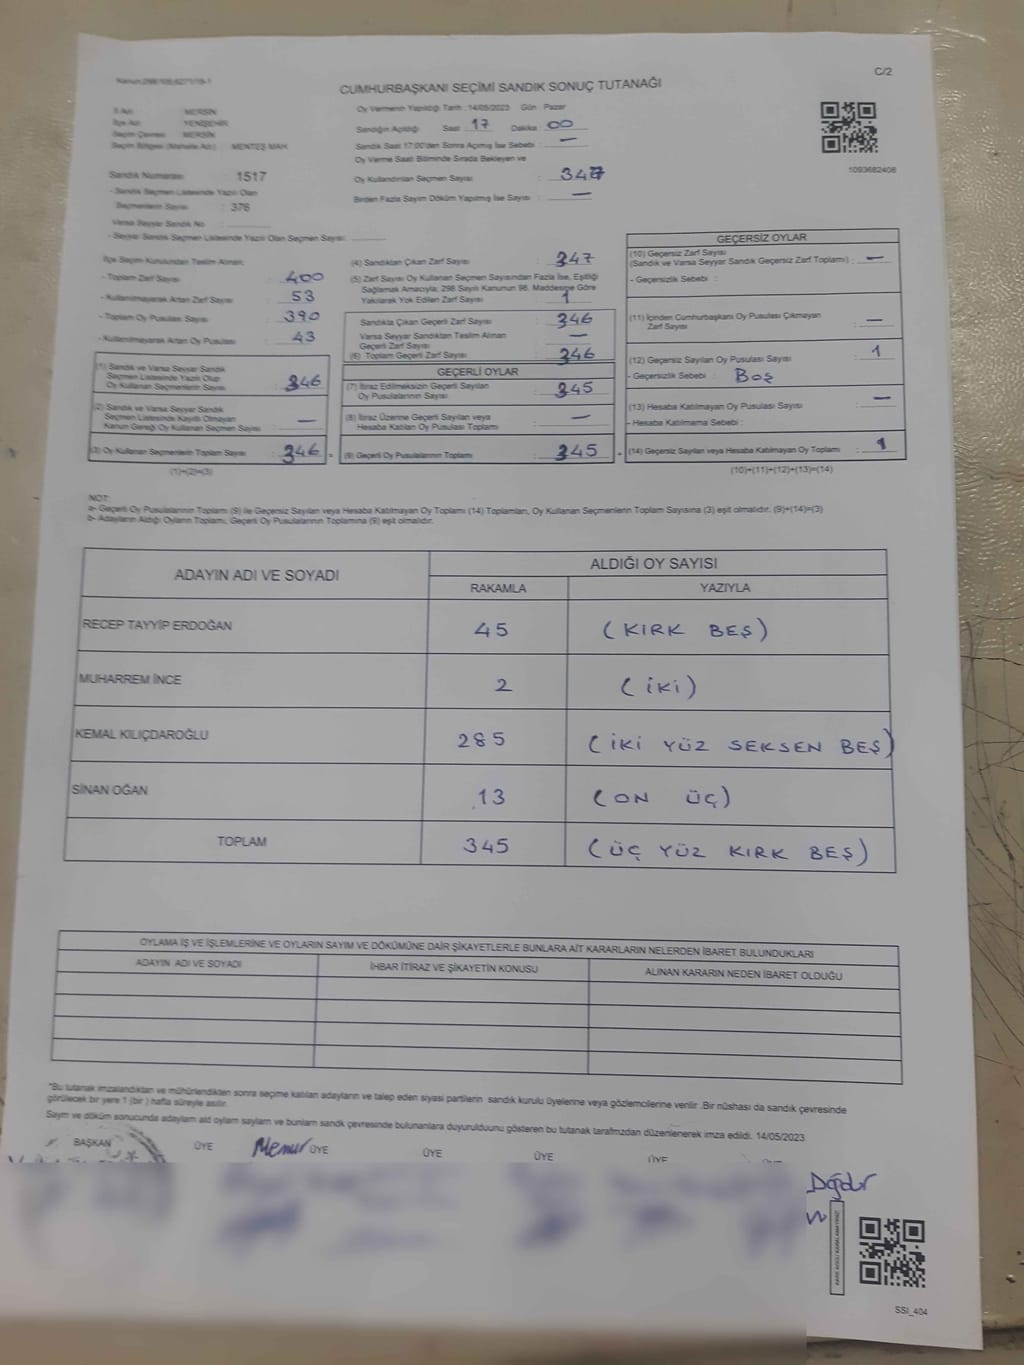 C/2
CUMHURBAŞKANI SEÇİMİ SANDIK SONUÇ TUTANAĞI
İl Adı : MERSİN
İlçe Adı : YENİŞEHİR
Seçim Çevresi : MERSİN
Seçim Bölgesi (Mahalle Adı) : MENTEŞ MAH.
Oy Vermenin Yapıldığı Tarih : 14/05/2023 Gün : Pazar
Sandığın Açıldığı Saat : 17 Dakika : 00
Sandık Saat 17:00'den Sonra Açılmış İse Sebebi : —
Oy Verme Saati Bitiminde Sırada Bekleyen ve
Oy Kullandırılan Seçmen Sayısı : 347
Birden Fazla Sayım Döküm Yapılmış İse Sayısı : —
1093682408
Sandık Numarası : 1517
- Sandık Seçmen Listesinde Yazılı Olan
Seçmenlerin Sayısı : 376
Varsa Seyyar Sandık No :
- Seyyar Sandık Seçmen Listesinde Yazılı Olan Seçmen Sayısı :
İlçe Seçim Kurulundan Teslim Alınan;
- Toplam Zarf Sayısı : 400
- Kullanılmayarak Artan Zarf Sayısı : 53
- Toplam Oy Pusulası Sayısı : 390
- Kullanılmayarak Artan Oy Pusulası : 43
(1) Sandık ve Varsa Seyyar Sandık
Seçmen Listesinde Yazılı Olup
Oy Kullanan Seçmenlerin Sayısı : 346
(2) Sandık ve Varsa Seyyar Sandık
Seçmen Listesinde Kayıtlı Olmayan
Kanun Gereği Oy Kullanan Seçmen Sayısı : —
(3) Oy Kullanan Seçmenlerin Toplam Sayısı : 346
(1)+(2)=(3)
(4) Sandıktan Çıkan Zarf Sayısı : 347
(5) Zarf Sayısı Oy Kullanan Seçmen Sayısından Fazla İse, Eşitliği
Sağlamak Amacıyla; 298 Sayılı Kanunun 98. Maddesine Göre
Yakılarak Yok Edilen Zarf Sayısı : 1
Sandıkta Çıkan Geçerli Zarf Sayısı : 346
Varsa Seyyar Sandıktan Teslim Alınan
Geçerli Zarf Sayısı : —
(6) Toplam Geçerli Zarf Sayısı : 346
GEÇERLİ OYLAR
(7) İtiraz Edilmeksizin Geçerli Sayılan
Oy Pusulalarının Sayısı : 345
(8) İtiraz Üzerine Geçerli Sayılan veya
Hesaba Katılan Oy Pusulası Toplamı : —
(9) Geçerli Oy Pusulalarının Toplamı : 345
GEÇERSİZ OYLAR
(10) Geçersiz Zarf Sayısı
(Sandık ve Varsa Seyyar Sandık Geçersiz Zarf Toplamı) : —
- Geçersizlik Sebebi :
(11) İçinden Cumhurbaşkanı Oy Pusulası Çıkmayan
Zarf Sayısı : —
(12) Geçersiz Sayılan Oy Pusulası Sayısı : 1
- Geçersizlik Sebebi : Boş
(13) Hesaba Katılmayan Oy Pusulası Sayısı : —
- Hesaba Katılmama Sebebi :
(14) Geçersiz Sayılan veya Hesaba Katılmayan Oy Toplamı : 1
(10)+(11)+(12)+(13)=(14)
NOT:
a- Geçerli Oy Pusulalarının Toplamı (9) ile Geçersiz Sayılan veya Hesaba Katılmayan Oy Toplamı (14) Toplamları, Oy Kullanan Seçmenlerin Toplam Sayısına (3) eşit olmalıdır. (9)+(14)=(3)
b- Adayların Aldığı Oyların Toplamı, Geçerli Oy Pusulalarının Toplamına (9) eşit olmalıdır.
ADAYIN ADI VE SOYADI
ALDIĞI OY SAYISI
RAKAMLA YAZIYLA
RECEP TAYYİP ERDOĞAN 45 (KIRK BEŞ)
MUHARREM İNCE 2 (İKİ)
KEMAL KILIÇDAROĞLU 285 (İKİ YÜZ SEKSEN BEŞ)
SİNAN OĞAN 13 (ON ÜÇ)
TOPLAM 345 (ÜÇ YÜZ KIRK BEŞ)
OYLAMA İŞ VE İŞLEMLERİNE VE OYLARIN SAYIM VE DÖKÜMÜNE DAİR ŞİKAYETLERLE BUNLARA AİT KARARLARIN NELERDEN İBARET BULUNDUKLARI
ADAYIN ADI VE SOYADI İHBAR İTİRAZ VE ŞİKAYETİN KONUSU ALINAN KARARIN NEDEN İBARET OLDUĞU
*Bu tutanak imzalandıktan ve mühürlendikten sonra seçime katılan adayların ve talep eden siyasi partilerin sandık kurulu üyelerine veya gözlemcilerine verilir .Bir nüshası da sandık çevresinde
görülecek bir yere 1 (bir ) hafta süreyle asılır.
Sayım ve döküm sonucunda adayların ald oyların sayların ve bunların sandk çevresinde bulunanlara duyurulduunu gösteren bu tutanak tarafmzdan düzenlenerek imza edildi. 14/05/2023
BAŞKAN ÜYE Memur ÜYE ÜYE ÜYE ÜYE
SSI_404